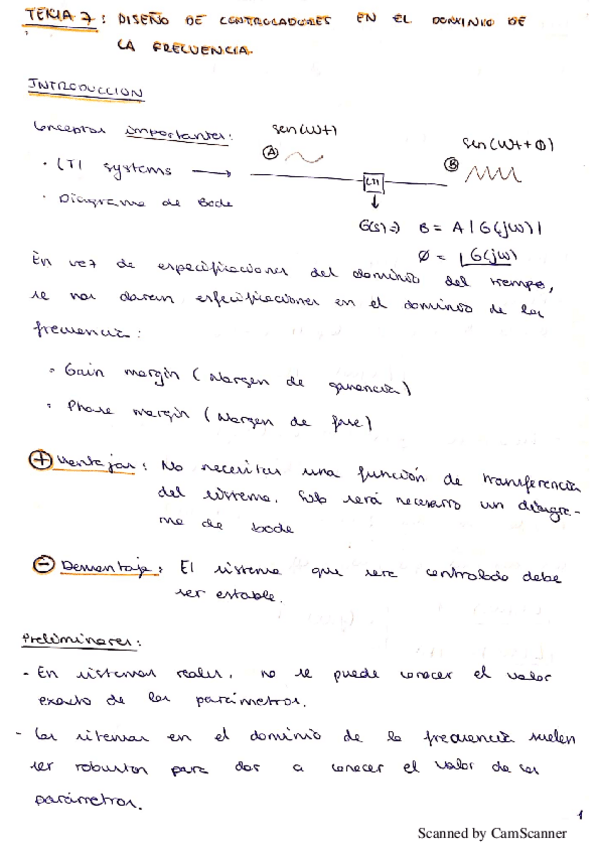 TEMA 7: DISEÑO DE CONTROLADORES EN EL DOMINIO DE
LA FRECUENCIA.
INTRODUCCION
Conceptos importantes:
sen(wt)
sen(wt+Φ)
A
B
· LTI systems →
LTI
· Diagrama de Bode
G(s)⇒ B = A|G(jw)|
Ø = ∠G(jw)
En vez de especificaciones del dominio del tiempo,
se nos daran especificaciones en el dominio de las
frecuencia:
· Gain margin (Margen de ganancia)
· Phase margin (Margen de fase)
+ Ventajas: No necesitas una función de transferencia
del sistema. Solo será necesario un diagra-
ma de bode
- Desventaja: El sistema que sera controlado debe
ser estable.
Preliminares:
- En sistemas reales, no se puede conocer el valor
exacto de los parámetros.
- Los sitemas en el dominio de la frecuencia suelen
ser robustos para dar a conocer el valor de los
parámetros.
1
Scanned by CamScanner